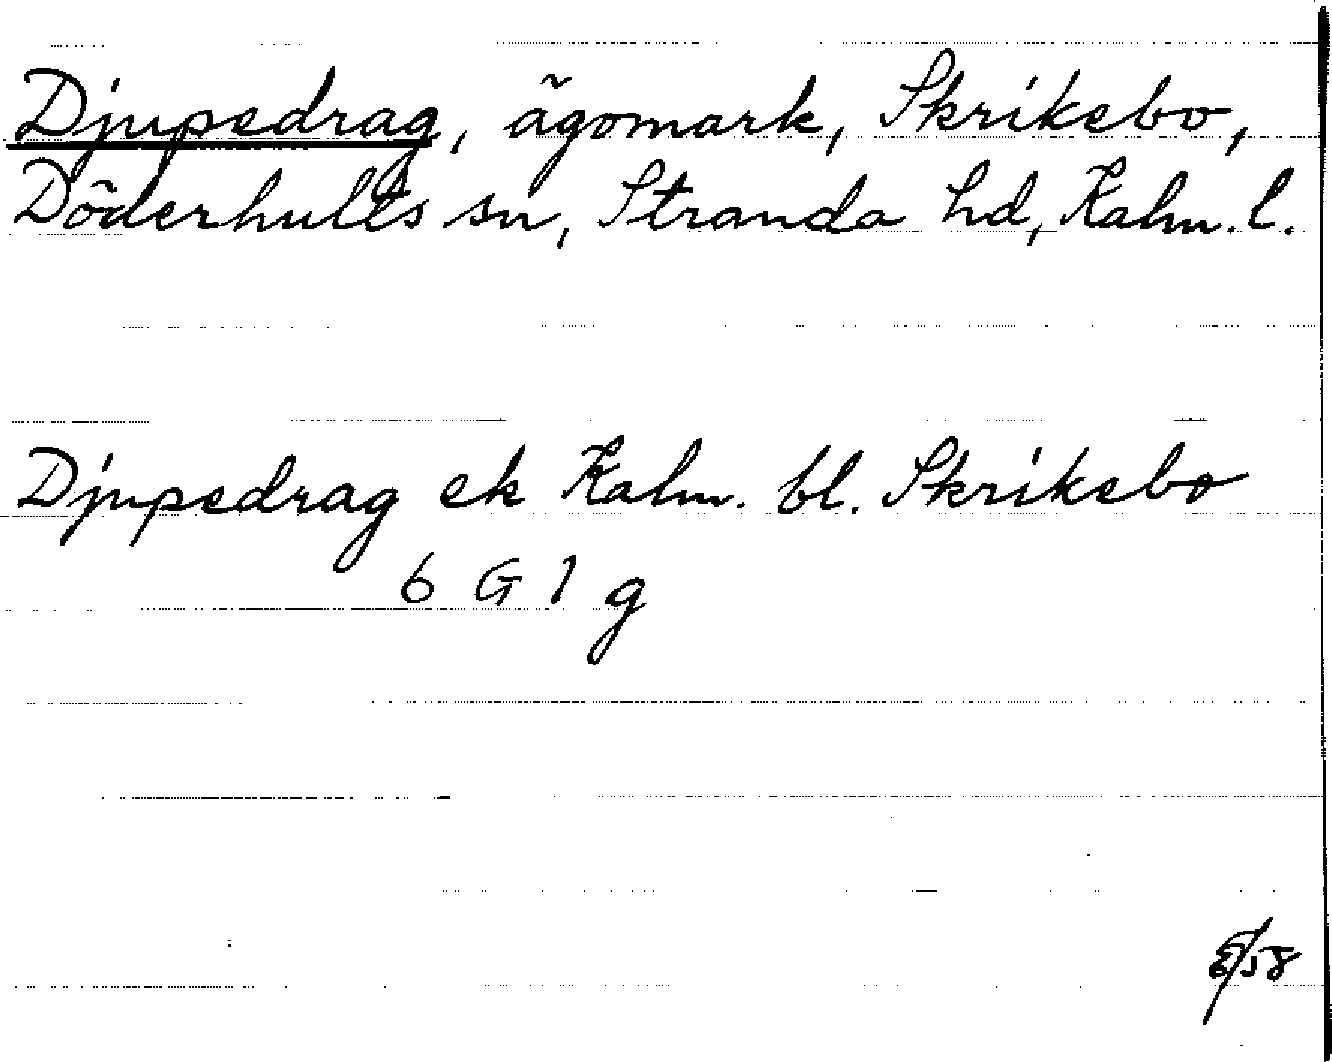 Djupedrag, ägomark, Skrikebo,
Döderhults sn, Stranda hd, Kalm. l.
Djupedrag ek Kalm. bl. Skrikebo
6 G 1 g